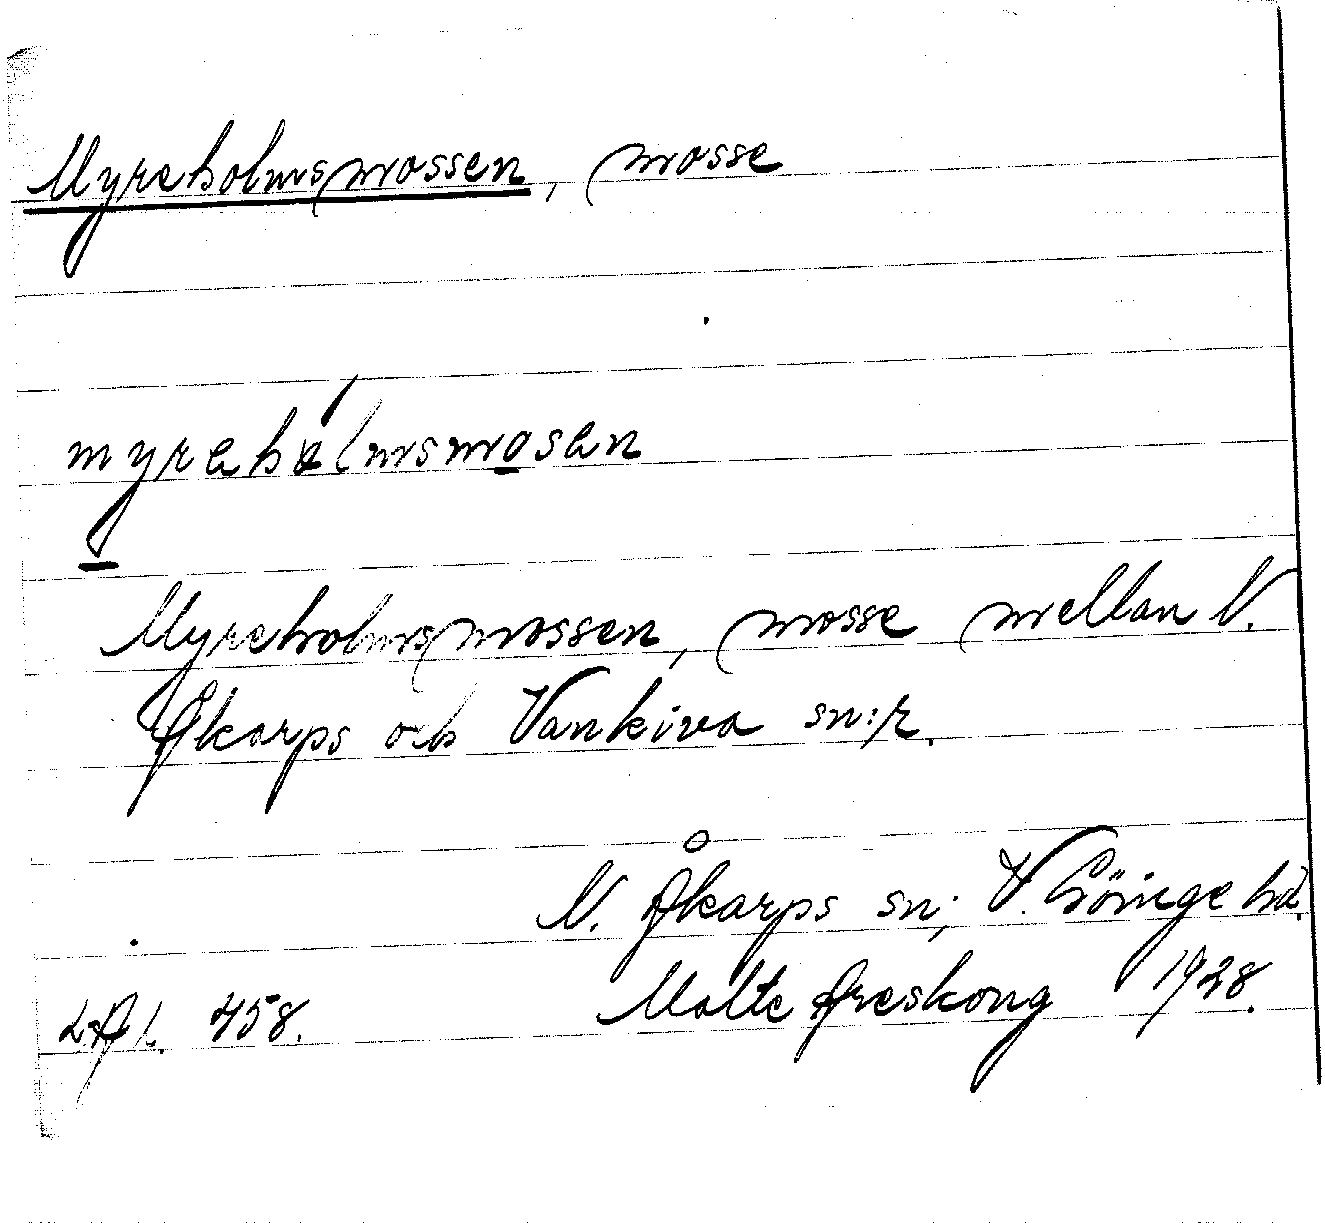 Myreholmsmossen, mosse
myrehålmsmosen
Myreholmsmossen, mosse mellan N.
Åkarps och Vankiva sn:r.
N. Åkarps sn; V. Göinge hd.
Malte Areskong 1928.
LAL. 458.